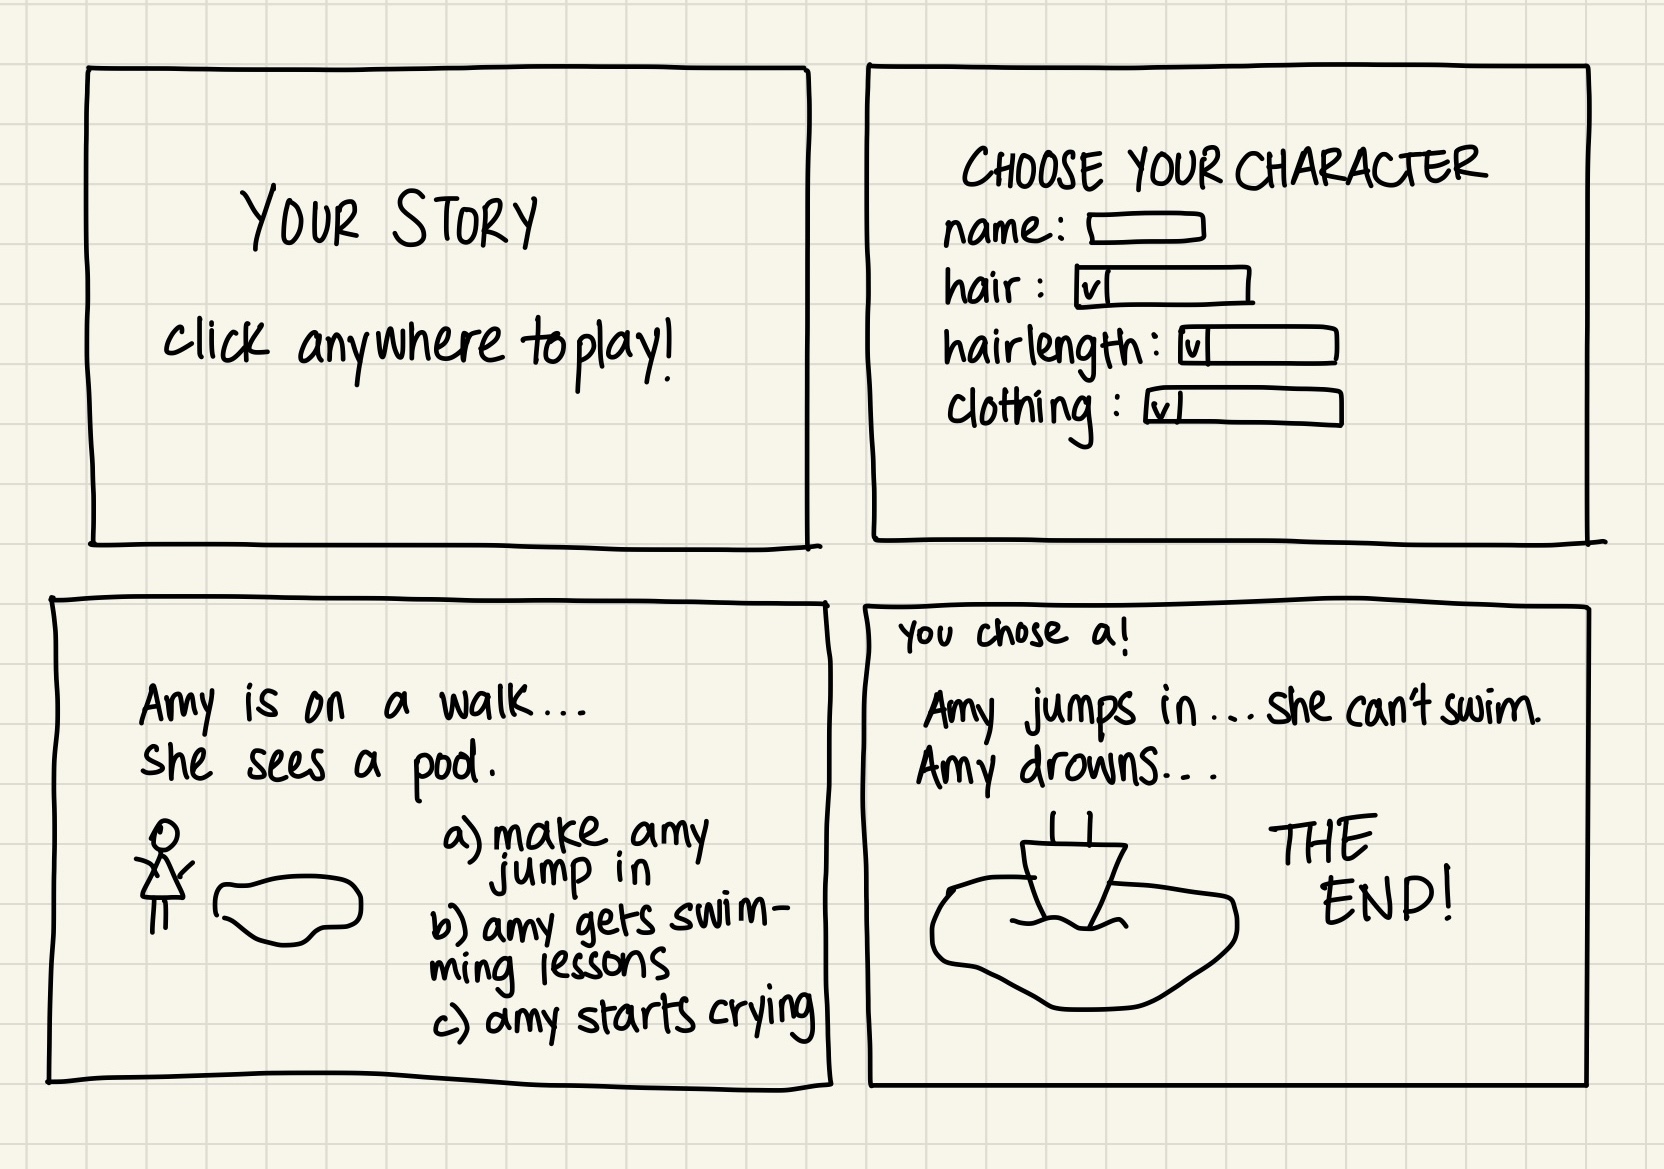 YOUR STORY
click anywhere to play!
CHOOSE YOUR CHARACTER
name:
hair:
hairlength:
clothing:
Amy is on a walk...
She sees a pool.
a) make amy
jump in
b) amy gets swim-
ming lessons
c) amy starts crying
You chose a!
Amy jumps in... she can't swim.
Amy drowns...
THE
END!